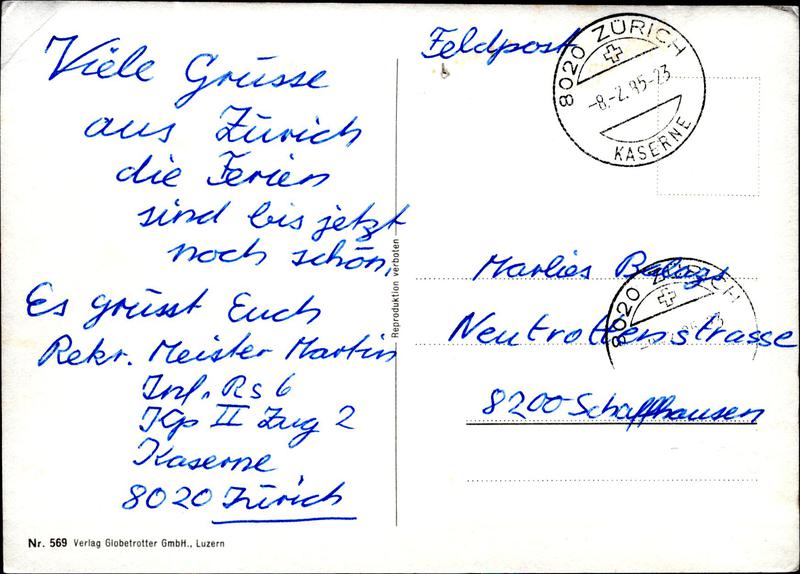 Viele Grüsse
aus Zürich
die Ferien
sind bis jetzt
noch schön.
Es grüsst Euch
Rekr. Meister Martin
Inf. Rs 6
Kp II Zug 2
Kaserne
8020 Zürich
Nr. 569 Verlag Globetrotter GmbH., Luzern
Reproduktion verboten
Feldpost
8020 ZÜRICH
-8.-2.85-23
KASERNE
Marlies Balazs
8020 ZÜRICH
Neutrottenstrasse
8200 Schaffhausen